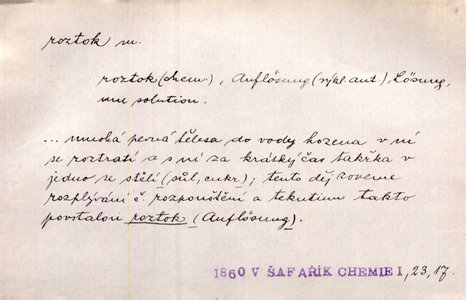 roztok m.
roztok (chem.), Auflösung (výkl. aut.), Lösung,
une solution.
... mnohá pevná tělesa do vody hozena v ní
se roztratí a s ní za krátký čas takřka v
jedno se stělí (sůl, cukr); tento děj zoveme
rozplývání č. rozpouštění a tekutinu takto
povstalou roztok (Auflösung).
1860 V ŠAFAŘÍK CHEMIE I, 23, 17.